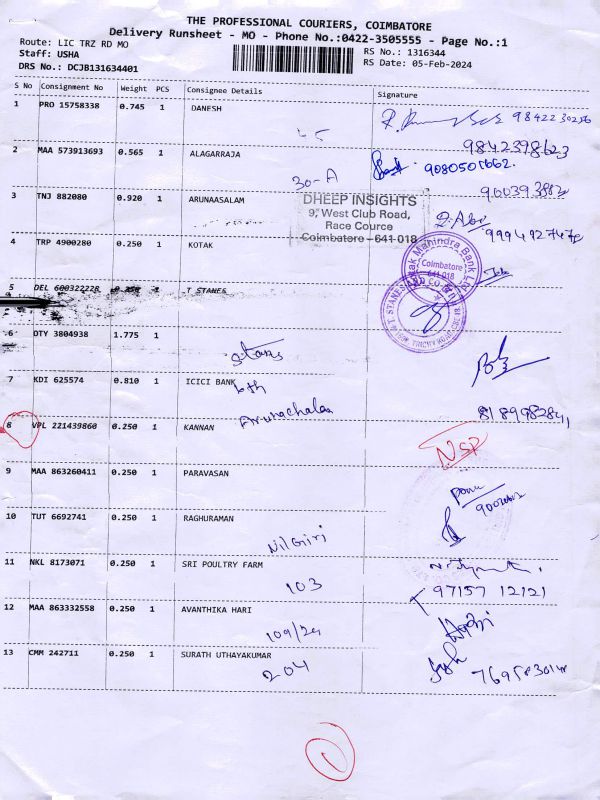 THE PROFESSIONAL COURIERS, COIMBATORE
Delivery Runsheet - MO - Phone No.:0422-3505555 - Page No.:1
Route: LIC TRZ RD MO
RS No.: 1316344
Staff: USHA
RS Date: 05-Feb-2024
DRS No.: DCJB131634401
S No Consignment No Weight PCS Consignee Details Signature
1 PRO 15758338 0.745 1 DANESH
2 MAA 573913693 0.565 1 ALAGARRAJA
9842398623
9080501662.
30-A
3 TNJ 882080 0.920 1 ARUNAASALAM
DHEEP INSIGHTS
9, West Club Road,
Race Cource
Coimbatore - 641 018
4 TRP 4900280 0.250 1 KOTAK
Mahindra Bank Ltd
Coimbatore
641 018
5 DEL 600322228 0.250 1 T STANES
T. STANES AND CO.
6 DTY 3804938 1.775 1
7 KDI 625574 0.810 1 ICICI BANK
8 VPL 221439860 0.250 1 KANNAN
Arunachalam
NSP
9 MAA 863260411 0.250 1 PARAVASAN
10 TUT 6692741 0.250 1 RAGHURAMAN
Nilgiri
11 NKL 8173071 0.250 1 SRI POULTRY FARM
103
97157 12121
12 MAA 863332558 0.250 1 AVANTHIKA HARI
109/24
13 CMM 242711 0.250 1 SURATH UTHAYAKUMAR
204
1